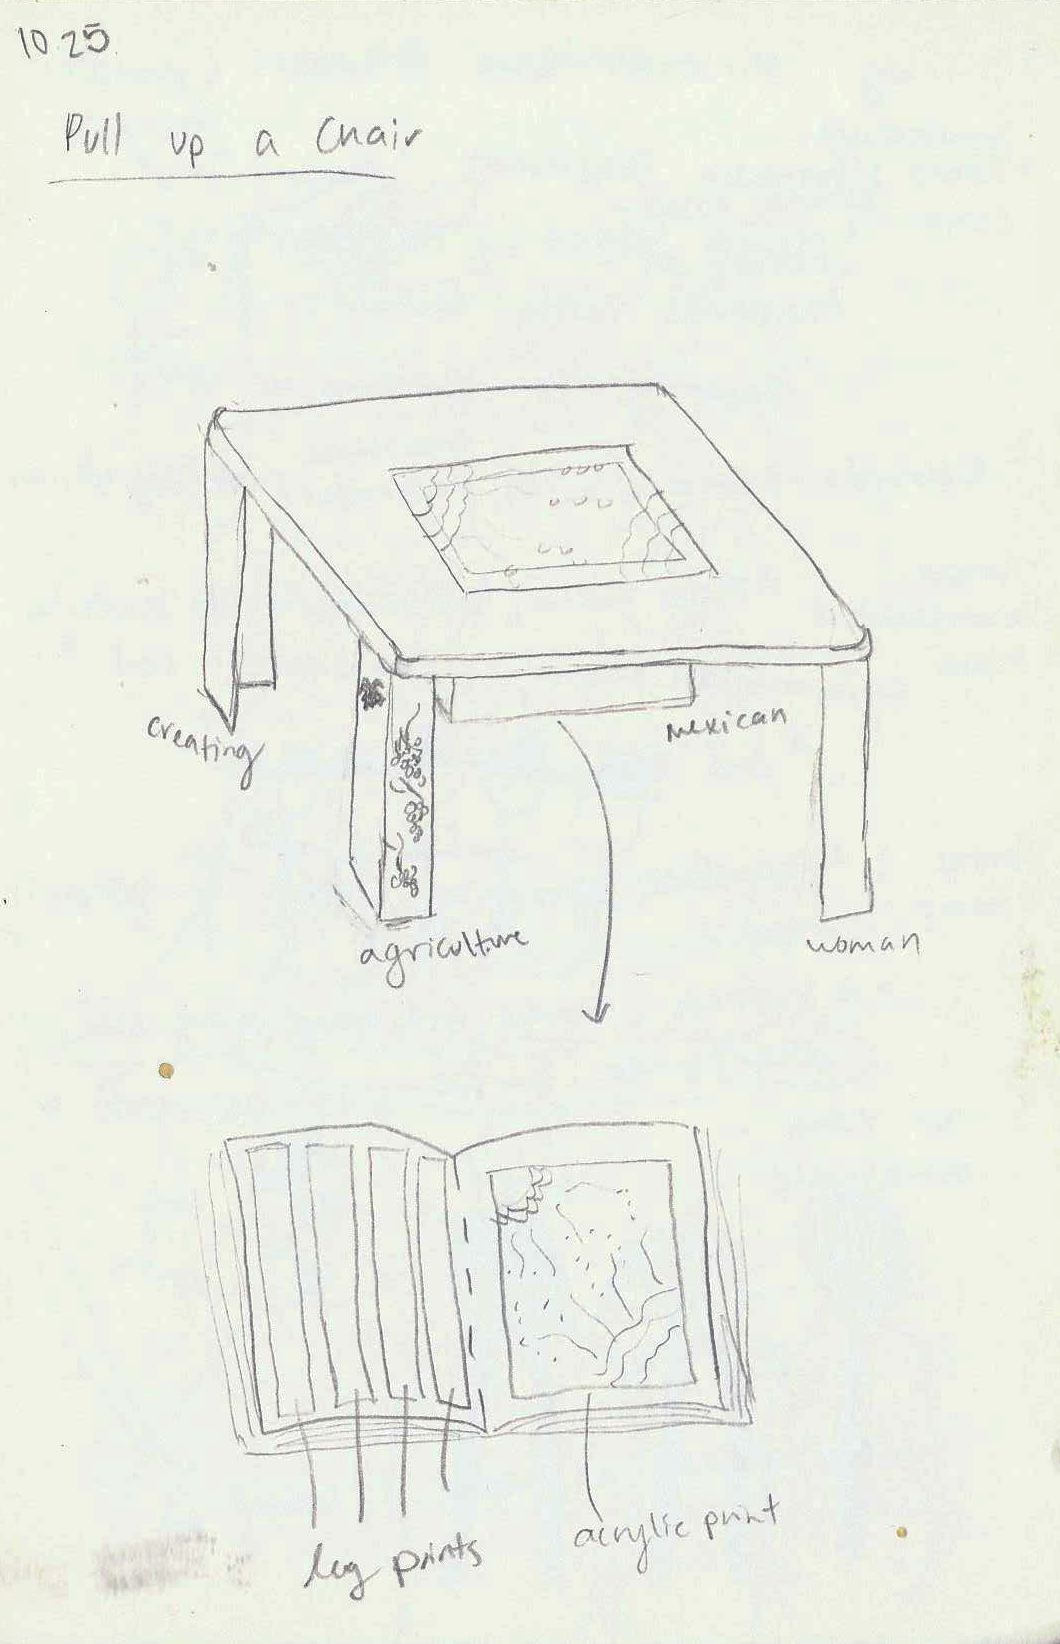 10.25
Pull up a Chair
creating
mexican
agriculture
woman
leg prints
acrylic print